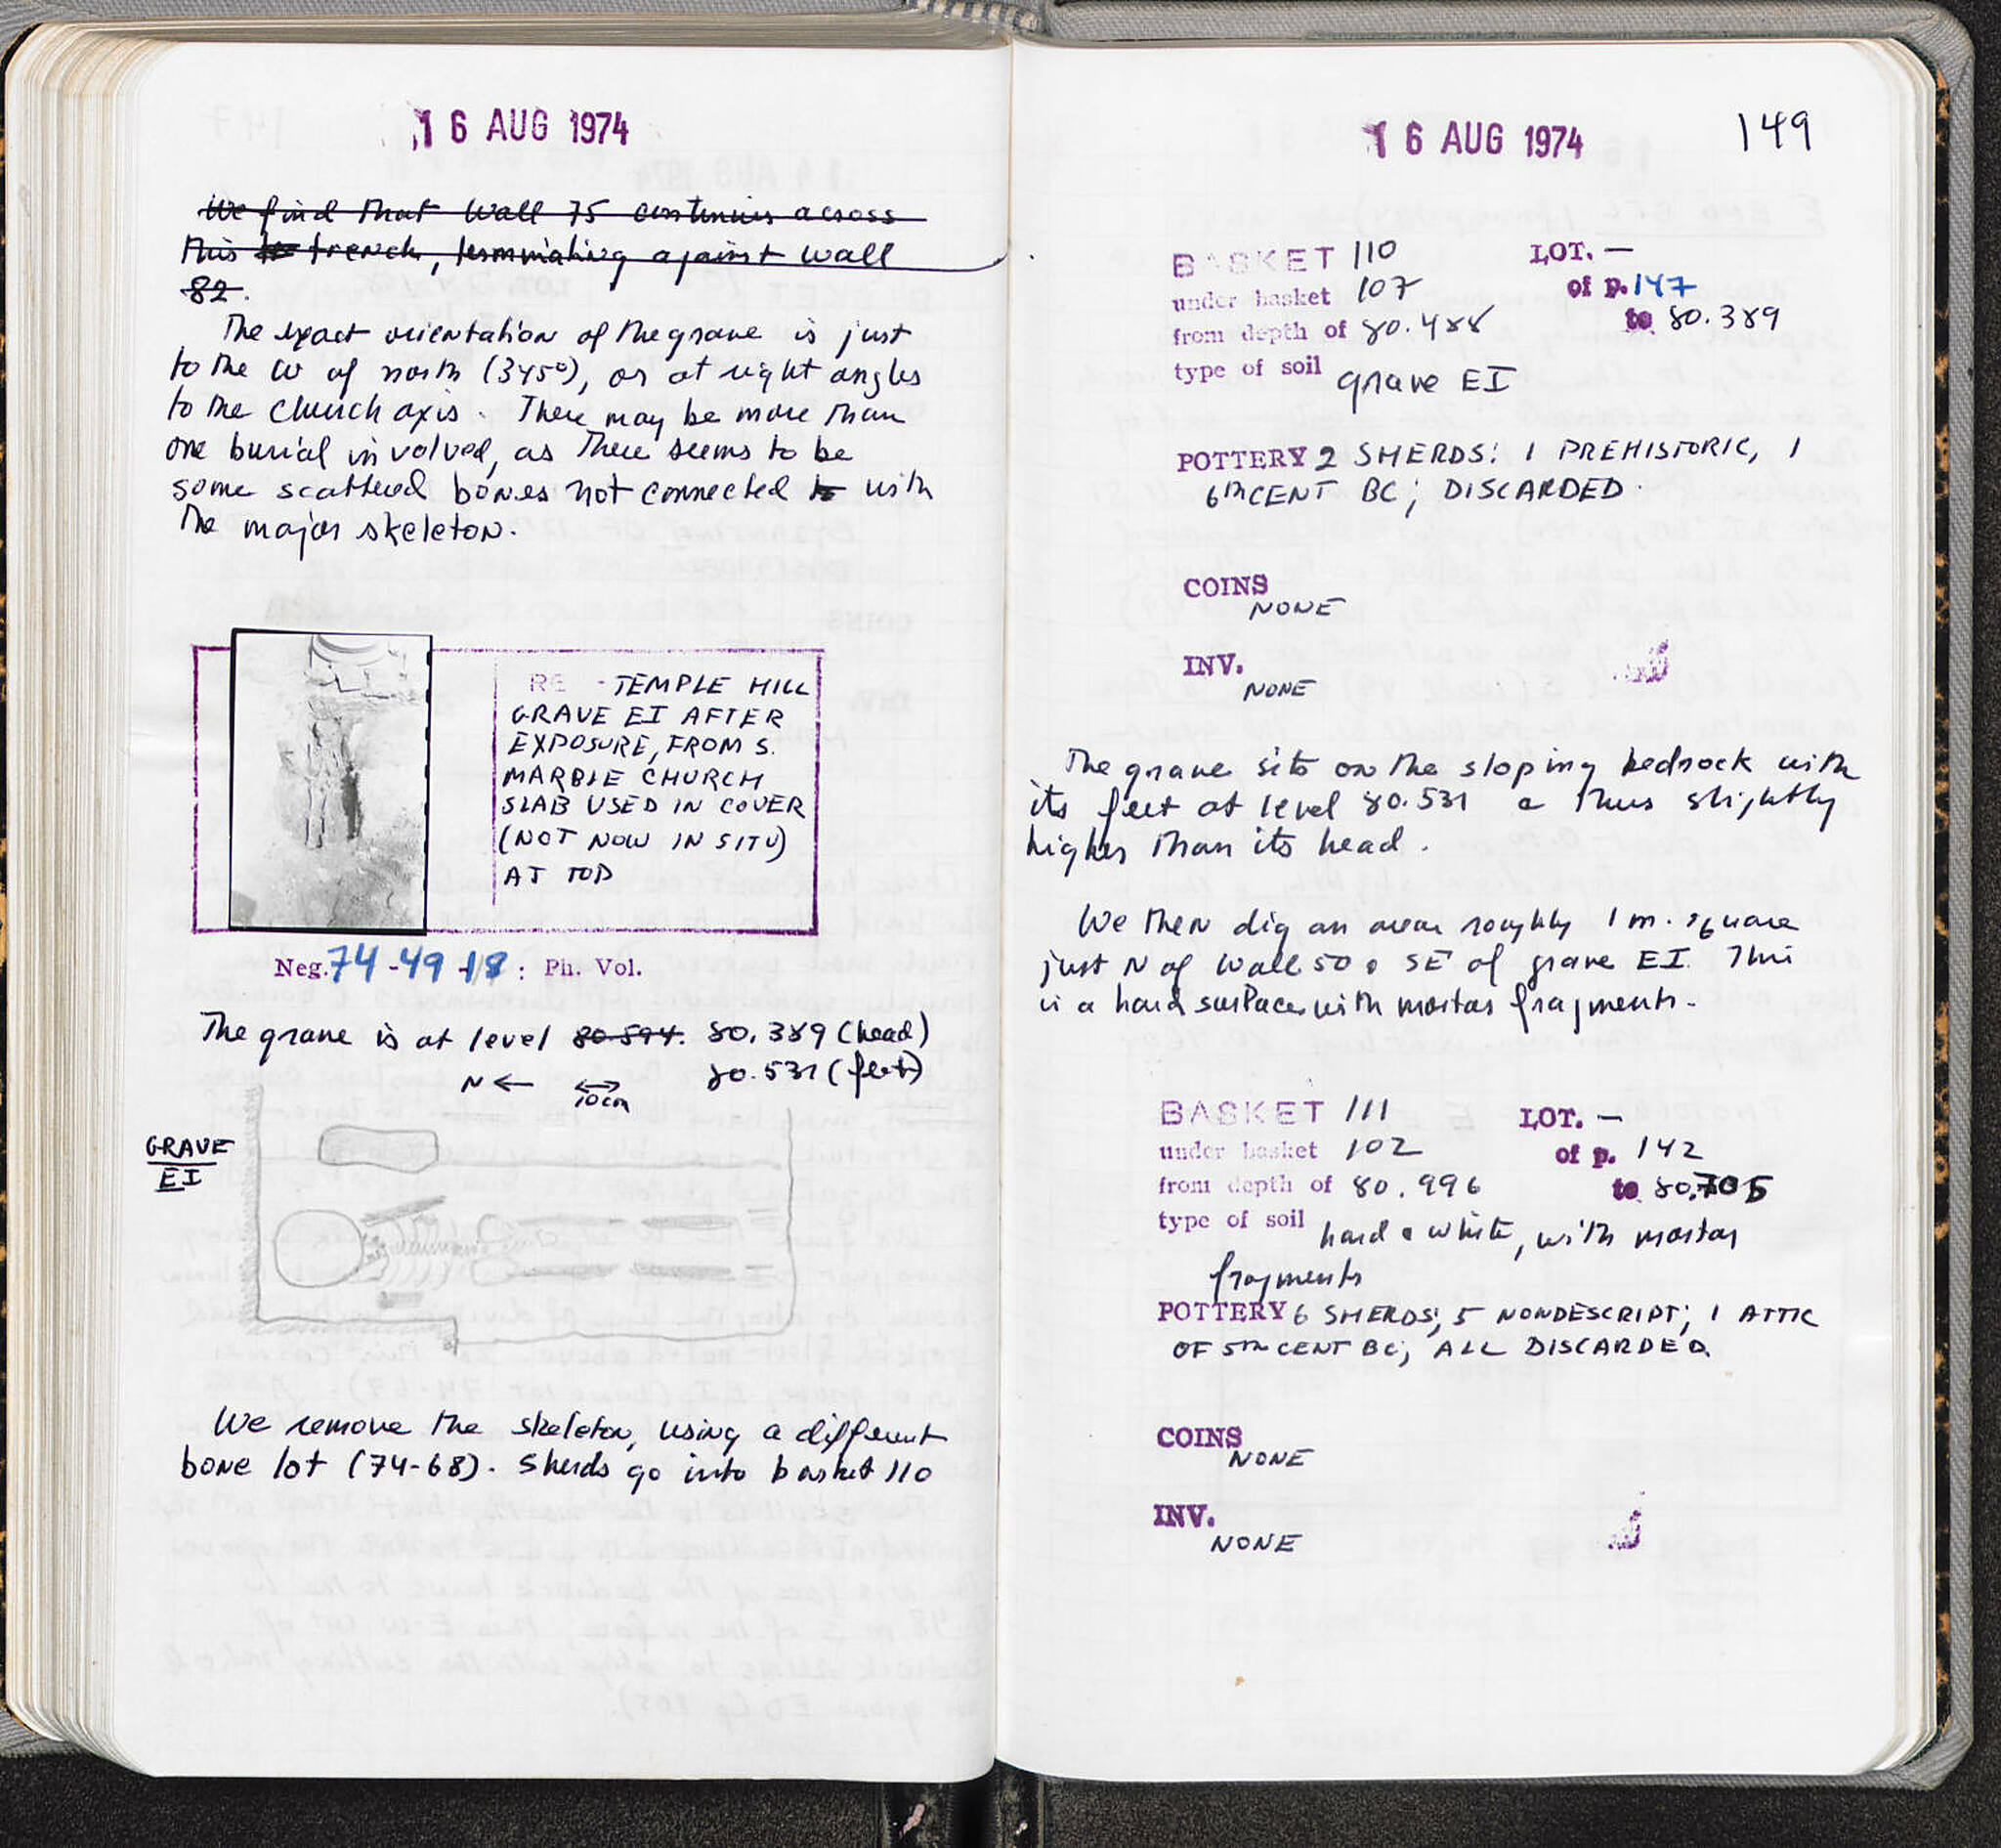 16 AUG 1974
We find that Wall 75 continues across
this trench, terminating against wall
82.
The exact orientation of the grave is just
to the W of north (345°), or at right angles
to the church axis. There may be more than
one burial involved, as there seems to be
some scattered bones not connected with
the major skeleton.
RE - TEMPLE HILL
GRAVE EI AFTER
EXPOSURE, FROM S.
MARBLE CHURCH
SLAB USED IN COVER
(NOT NOW IN SITU)
AT TOP
Neg. 74-49-18: Ph. Vol.
The grave is at level 80.594. 80.389 (head)
80.531 (feet)
N ←
10cm
GRAVE
EI
We remove the skeleton, using a different
bone lot (74-68). Sherds go into basket 110
16 AUG 1974
149
BASKET 110 LOT. —
under basket 107 of p. 147
from depth of 80.488 to 80.389
type of soil grave EI
POTTERY 2 SHERDS: 1 PREHISTORIC, 1
6th CENT BC; DISCARDED.
COINS
NONE
INV.
NONE
The grave sits on the sloping bedrock with
its feet at level 80.531 & thus slightly
higher than its head.
We then dig an area roughly 1 m. square
just N of Wall 50 & SE of grave EI. This
is a hard surface with mortar fragments.
BASKET 111 LOT. —
under basket 102 of p. 142
from depth of 80.996 to 80.705
type of soil hard & white, with mortar
fragments
POTTERY 6 SHERDS; 5 NONDESCRIPT; 1 ATTIC
OF 5th CENT BC; ALL DISCARDED
COINS
NONE
INV.
NONE